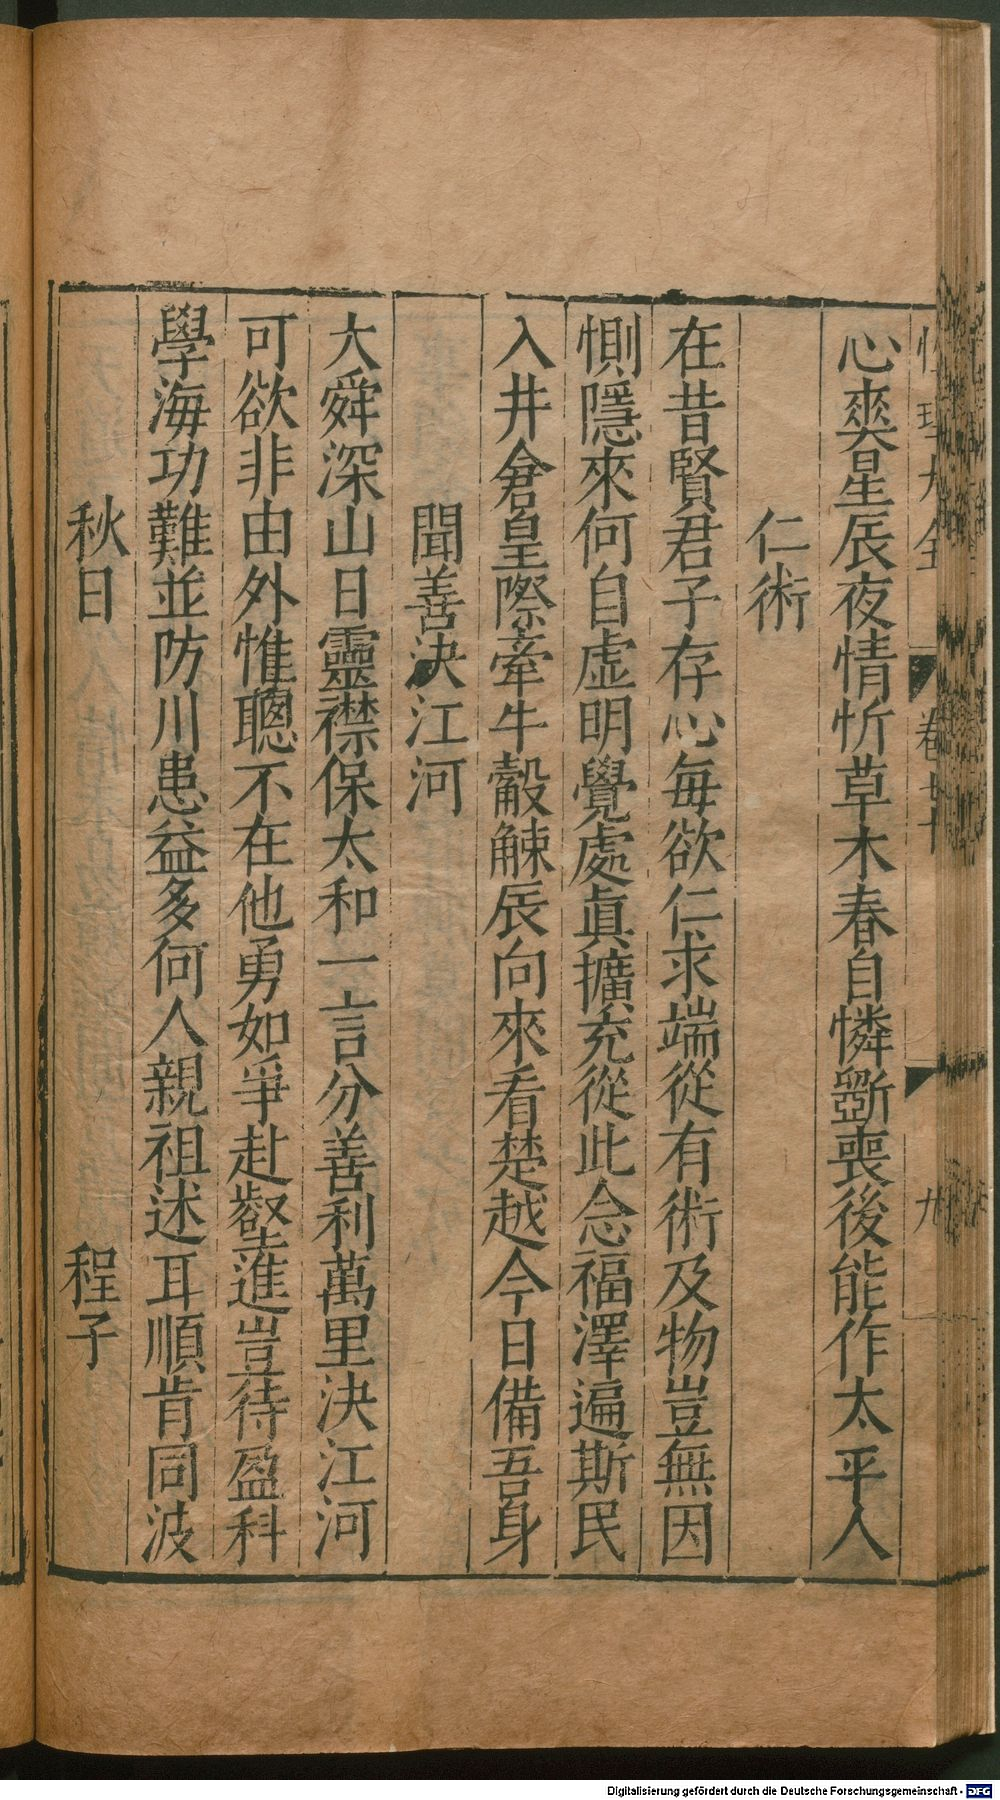 性理大全 卷七十 九
心爽星辰夜情忻草木春自憐斵喪後能作太平人
仁術
在昔賢君子存心每欲仁求端從有術及物豈無因
惻隱來何自虛明覺處眞擴充從此念福澤遍斯民
入井倉皇際牽牛觳觫辰向來看楚越今日備吾身
聞善決江河
大舜深山日靈襟保太和一言分善利萬里決江河
可欲非由外惟聰不在他勇如爭赴壑進豈待盈科
學海功難並防川患益多何人親祖述耳順肯同波
秋日 程子
Digitalisierung gefördert durch die Deutsche Forschungsgemeinschaft - DFG